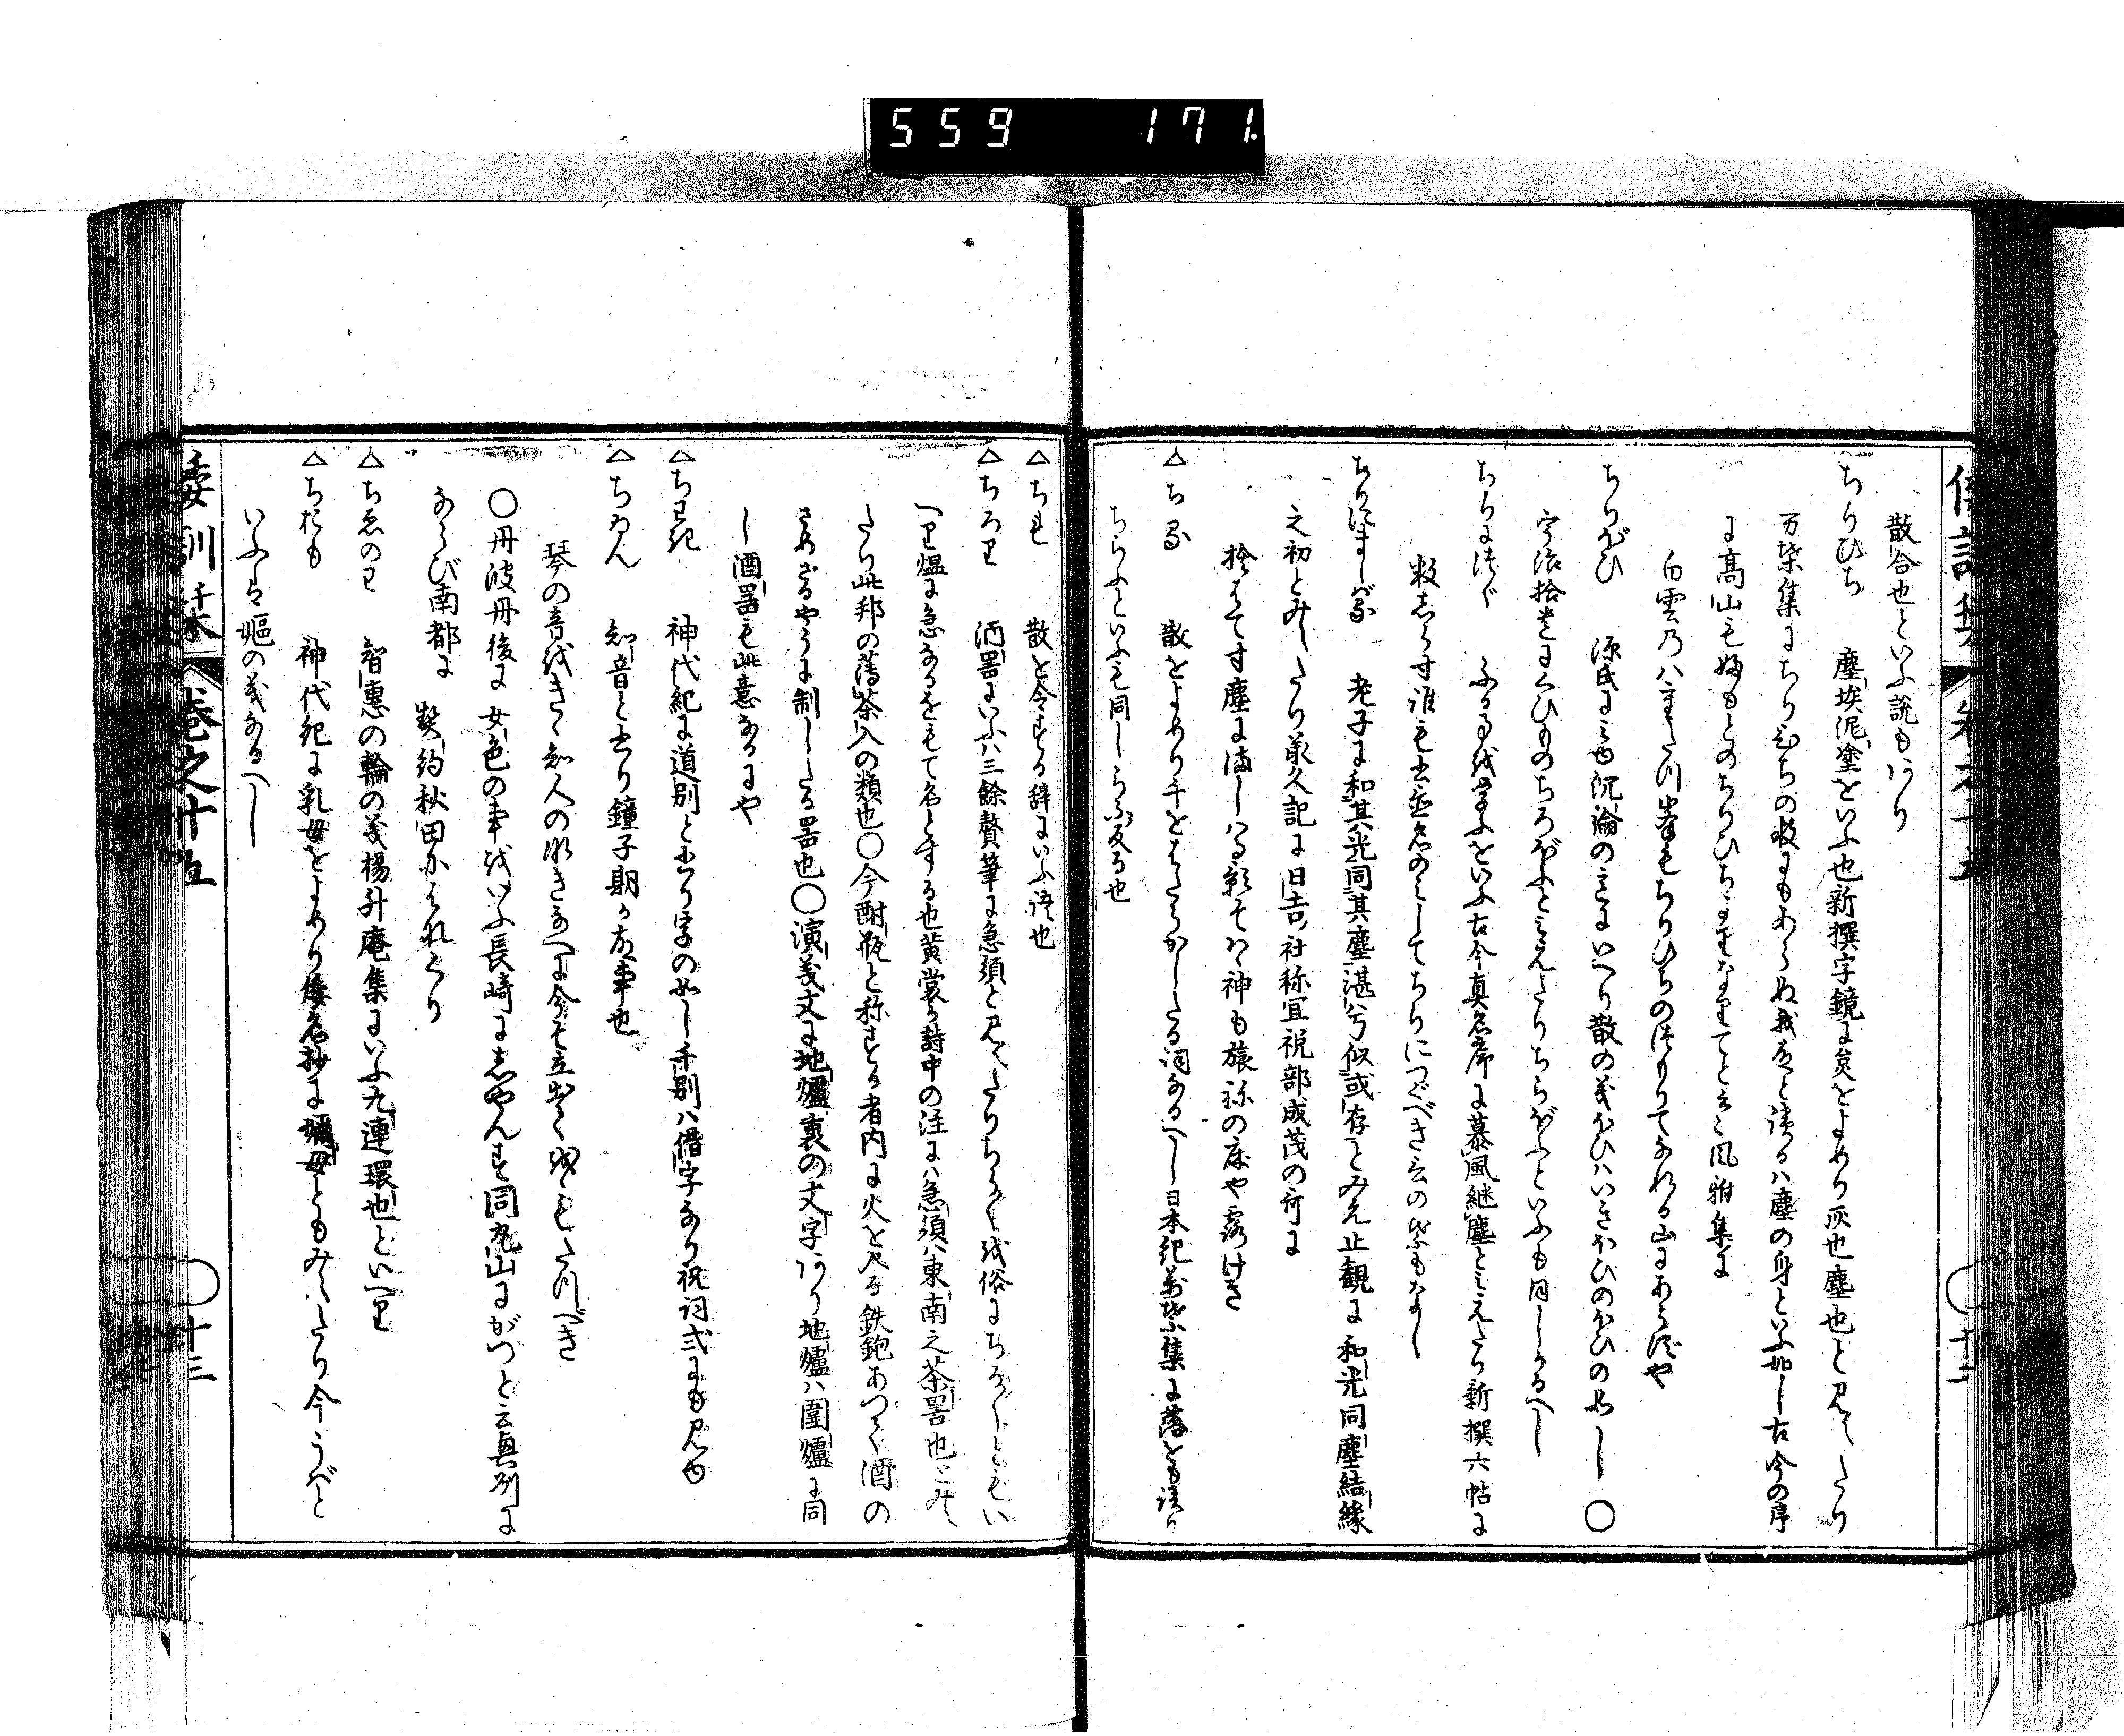 559 171
散合也といふ説もあり
ちりひち 塵埃泥塗をいふ也新撰字鏡に炱をよめり灰也塵也と見えたり
万葉集にちりひちの数にもあらぬ我とよめるハ塵の身といふ如し古今の序
に高山も麓のちりひちよりなりてと云々風雅集に
白雲の八重たつ峯もちりひちのつもりてなれる山にあらずや
ちりぼひ 源氏に見ゆ沉淪の意にいへり散の義ぼひハいきほひのほひの如し〇
宇治拾遺にくひものちろぼふとみえたりちらぼふといふも同しかるへし
ちりにつぐ ふる事を学ふをいふ古今真名序に慕風継塵とみえたり新撰六帖に
数しらす誰も書置名のみしてちりにつぐべき言の葉もなし
ちりにましはる 老子に和其光同其塵湛兮似或存とみえ止観に和光同塵結縁
之初とみえたり承久記に日吉社祢宜祝部成茂の哥に
捨はてす塵にましハる影そハヽ神も旅ねの床や露けき
△ちる 散をよめり千をはたらかしたる詞なるへし日本紀万葉集に落をも訓り
ちらふといふも同しらふ反る也
△ちれ 散を令する辞にいふ語也
△ちろり 酒器にいふハ三餘贅筆に急須と見えたりちろ〱を俗にちよろ〱ともい
へり煴に急なるをもて名とする也黄裳か詩中の注にハ急須ハ東南之茶器也とみえ
たり此邦の薄茶入の類也〇今酎瓶と称する者内に火を入る鉄銚あつく酒の
さめざるやうに制したる器也〇演義文に地爐裏の文字あり地爐ハ囲爐に同
し酒器も此意なるにや
△ちわき 神代紀に道別と書り字の如し千別ハ借字なり祝詞式にも見ゆ
△ちゐん 知音と書り鐘子期か故事也
琴の音をきヽ知人のなきなへに今そ立出てをもたつべき
〇丹波丹後に女色の事をいふ長崎にしやんす同丸山にがつと云奥列に
ならび南都に 契約秋田かはれくり
△ちゑのわ 智恵の輪の義楊升庵集にいふ九連環也といへり
△ちおも 神代紀に乳母をよめり倭名抄に嬭母ともみえたり今うばと
いふは嫗の義なるへし
倭訓栞 巻之十五 十二
倭訓栞 巻之十五 十三